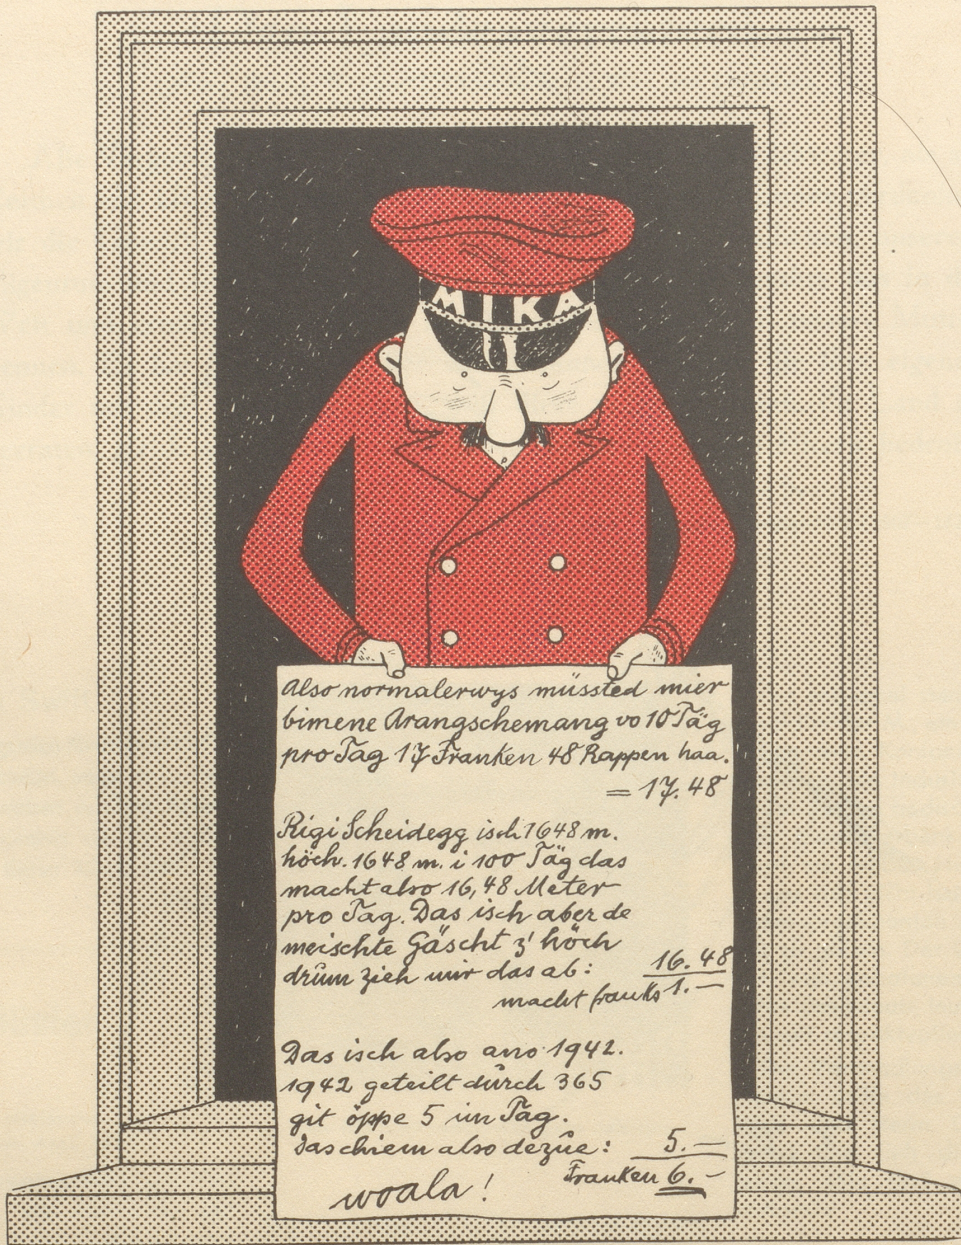 MIKA
Also normalerwys müssted mier
bimene Arangschemang vo 10 Täg
pro Tag 17 Franken 48 Rappen haa.
= 17.48
Rigi Scheidegg isch 1648 m.
höch. 1648 m. i 100 Täg das
macht also 16,48 Meter
pro Tag. Das isch aber de
meischte Gäscht z' höch
drum zieh mir das ab: 16.48
macht franks 1.—
Das isch also ano 1942.
1942 geteilt durch 365
git öppe 5 im Tag.
Das chiem also dezue: 5.—
Franken 6.-
woala!